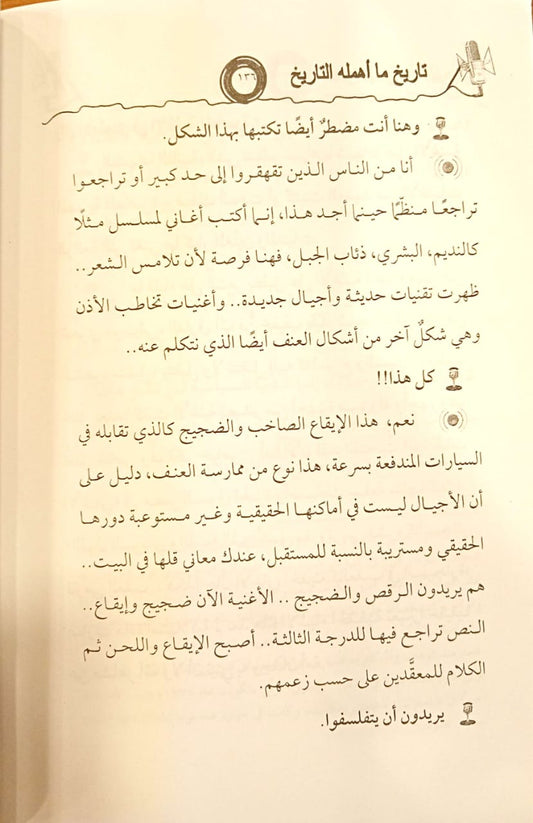 تاريخ ما أهمله التاريخ
١٣٦
وهنا أنت مضطرٌ أيضًا تكتبها بهذا الشكل.
أنا من الناس الذين تقهقروا إلى حد كبير أو تراجعوا
تراجعًا منظّمًا حينما أجد هذا، إنما أكتب أغاني لمسلسل مثلًا
كالنديم، البشري، ذئاب الجبل، فهنا فرصة لأن تلامس الشعر..
ظهرت تقنيات حديثة وأجيال جديدة.. وأغنيات تخاطب الأذن
وهي شكلٌ آخر من أشكال العنف أيضًا الذي نتكلم عنه..
كل هذا!!
نعم، هذا الإيقاع الصاخب والضجيج كالذي تقابله في
السيارات المندفعة بسرعة، هذا نوع من ممارسة العنف، دليل على
أن الأجيال ليست في أماكنها الحقيقية وغير مستوعبة دورها
الحقيقي ومستريبة بالنسبة للمستقبل، عندك معاني قلها في البيت..
هم يريدون الرقص والضجيج .. الأغنية الآن ضجيج وإيقاع..
النص تراجع فيها للدرجة الثالثة.. أصبح الإيقاع واللحن ثم
الكلام للمعقَّدين على حسب زعمهم.
يريدون أن يتفلسفوا.